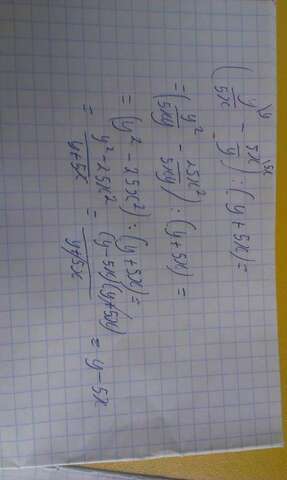 ( y/5x \y − 5x/y \5x ) : (y + 5x) =
= ( y²/5xy − 25x²/5xy ) : (y + 5x) =
= (y² − 25x²) : (y + 5x) =
= y² − 25x² / y + 5x = (y − 5x)(y + 5x) / y + 5x = y − 5x